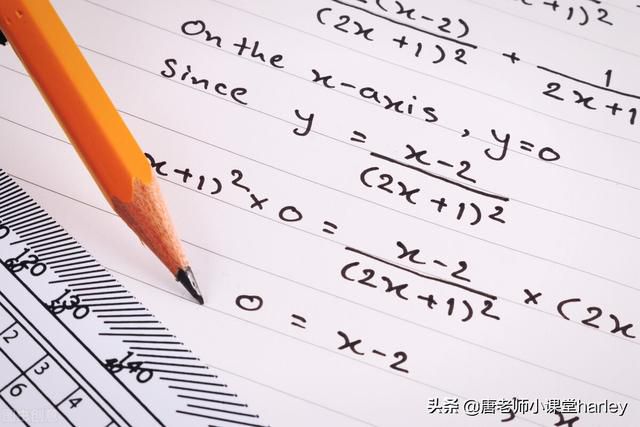 (x-2)
(2x+1)² + 1
2x+1
+1)²
On the x-axis, y=0
Since y = x-2
(2x+1)²
x+1)² × 0 = x-2
(2x+1)² × (2x
0 = x-2
120
130
140
2 3 4
6
头条 @唐老师小课堂harley